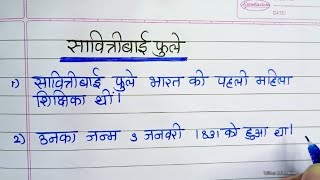 सावित्रीबाई फुले
1) सावित्रीबाई फुले भारत की पहली महिला
शिक्षिका थीं।
2) उनका जन्म 3 जनवरी 1831 को हुआ था।
DATE: